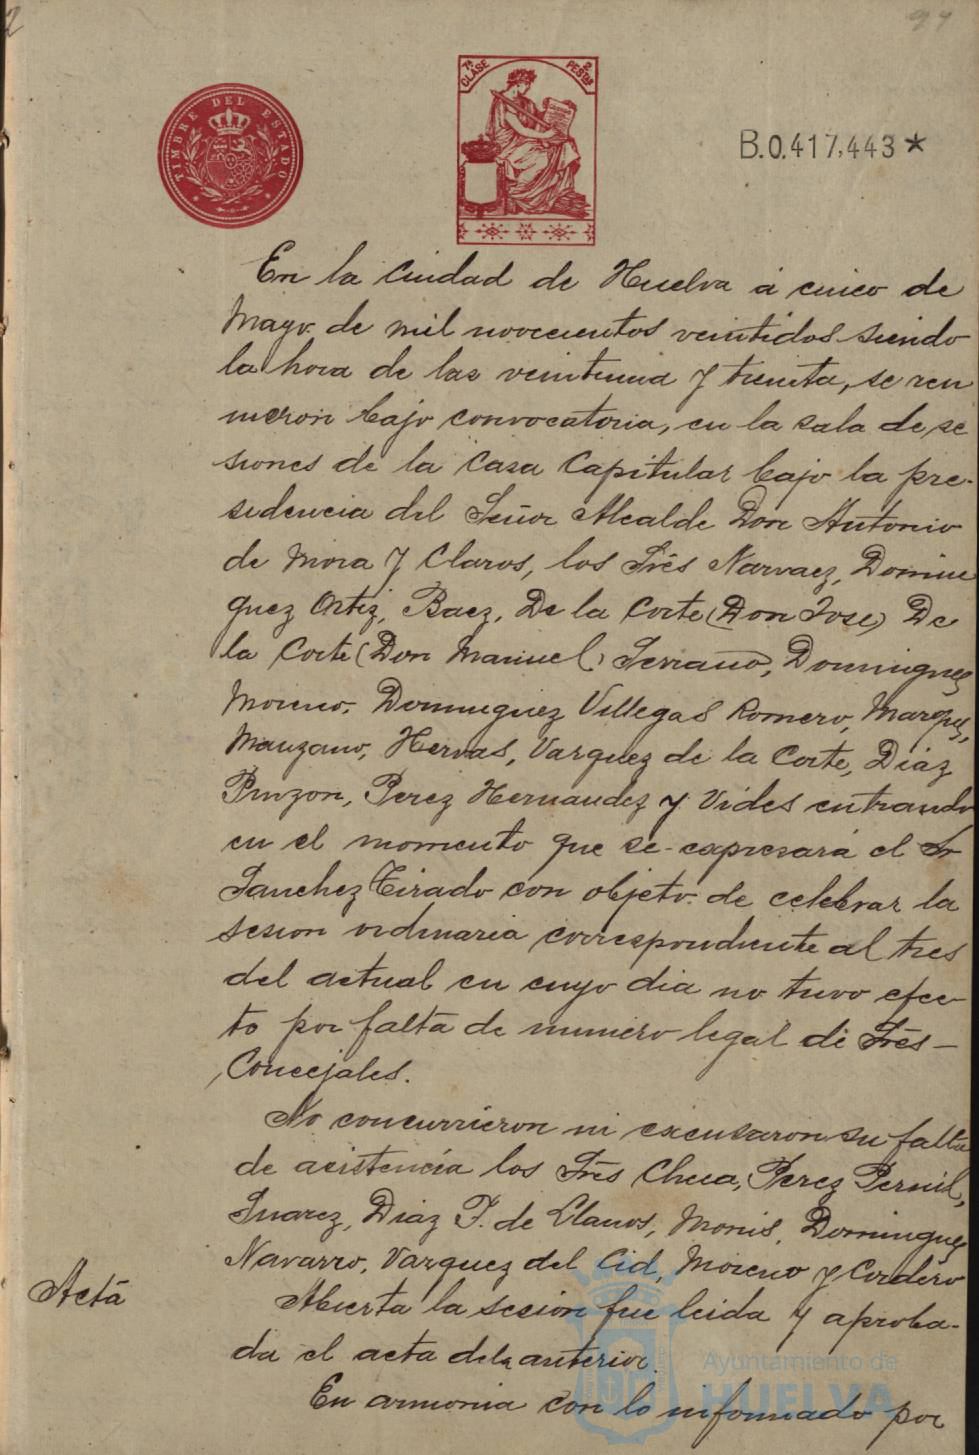 TIMBRE DEL ESTADO
7ª CLASE 2 PESTAS
B.0.417,443 *
En la Ciudad de Huelva á cinco de
Mayo de mil novecientos veintidos siendo
la hora de las veintiuna y treinta, se reu
nieron bajo convocatoria, en la sala de se
siones de la Casa Capitular bajo la pre-
sidencia del Señor Alcalde Don Antonio
de Mora y Claros, los Srés Narvaez, Domin
guez Ortiz, Baez, De la Corte (Don Jose) De
la Corte (Don Manuel) Serrano, Dominguez
Moreno, Dominguez Villegas Romero, Marquez,
Manzano, Hervas, Vazquez de la Corte, Diaz
Pinzon, Perez Hernandez y Vides entrando
en el momento que se expresará el Sr
Sanchez Tirado con objeto de celebrar la
sesion ordinaria correspondiente al tres
del actual en cuyo dia no tuvo efec-
to por falta de numero legal de Srés-
Concejales.
No concurrieron ni excusaron su falta
de asistencia los Srés Checa, Perez Pernil,
Suarez, Diaz F. de Llanos, Monis, Dominguez
Navarro, Vazquez del Cid, Moreno y Cordero
Acta
Abierta la sesion fue leida y aproba-
da el acta de la anterior.
En armonia con lo informado por
Ayuntamiento de
HUELVA